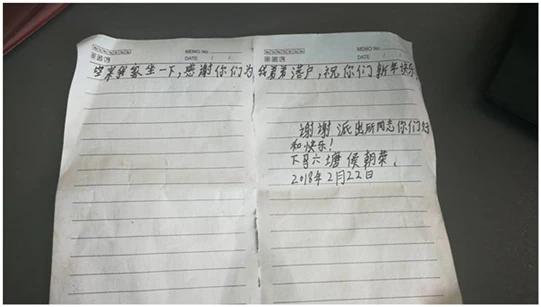 MEMO No.
DATE / /
MEMO No.
DATE / /
来我家坐一下,感谢你们为落户,祝你们新年快乐
谢谢派出所同志你们好
和快乐!
六塘侯朝荣、
2018年2月22日